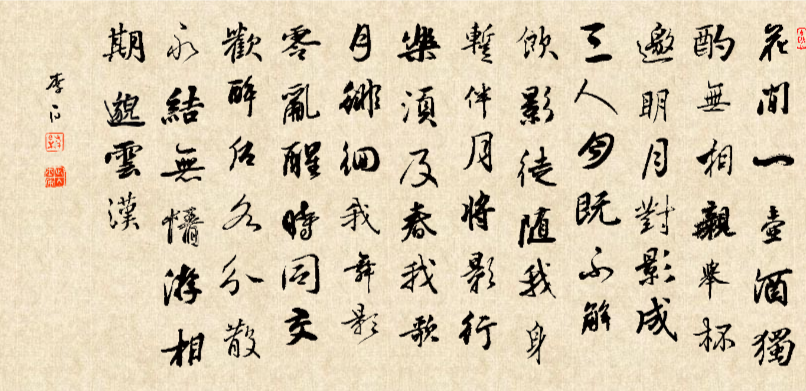 花間一壺酒獨
酌無相親舉杯
邀明月對影成
三人月既不解
飲影徒隨我身
暫伴月將影行
樂須及春我歌
月徘徊我舞影
零亂醒時同交
歡醉后各分散
永結無情游相
期邈雲漢
李白